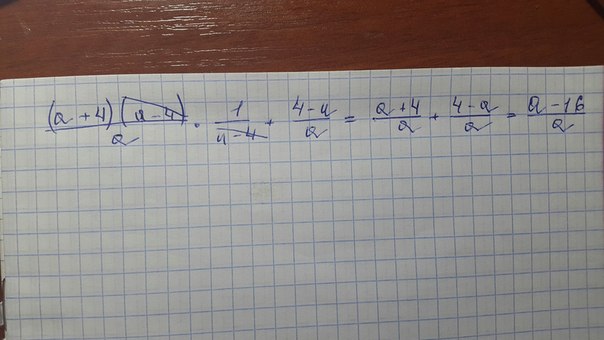 (a+4)(a-4)/a · 1/(a-4) + (4-a)/a = (a+4)/a + (4-a)/a = (a-16)/a